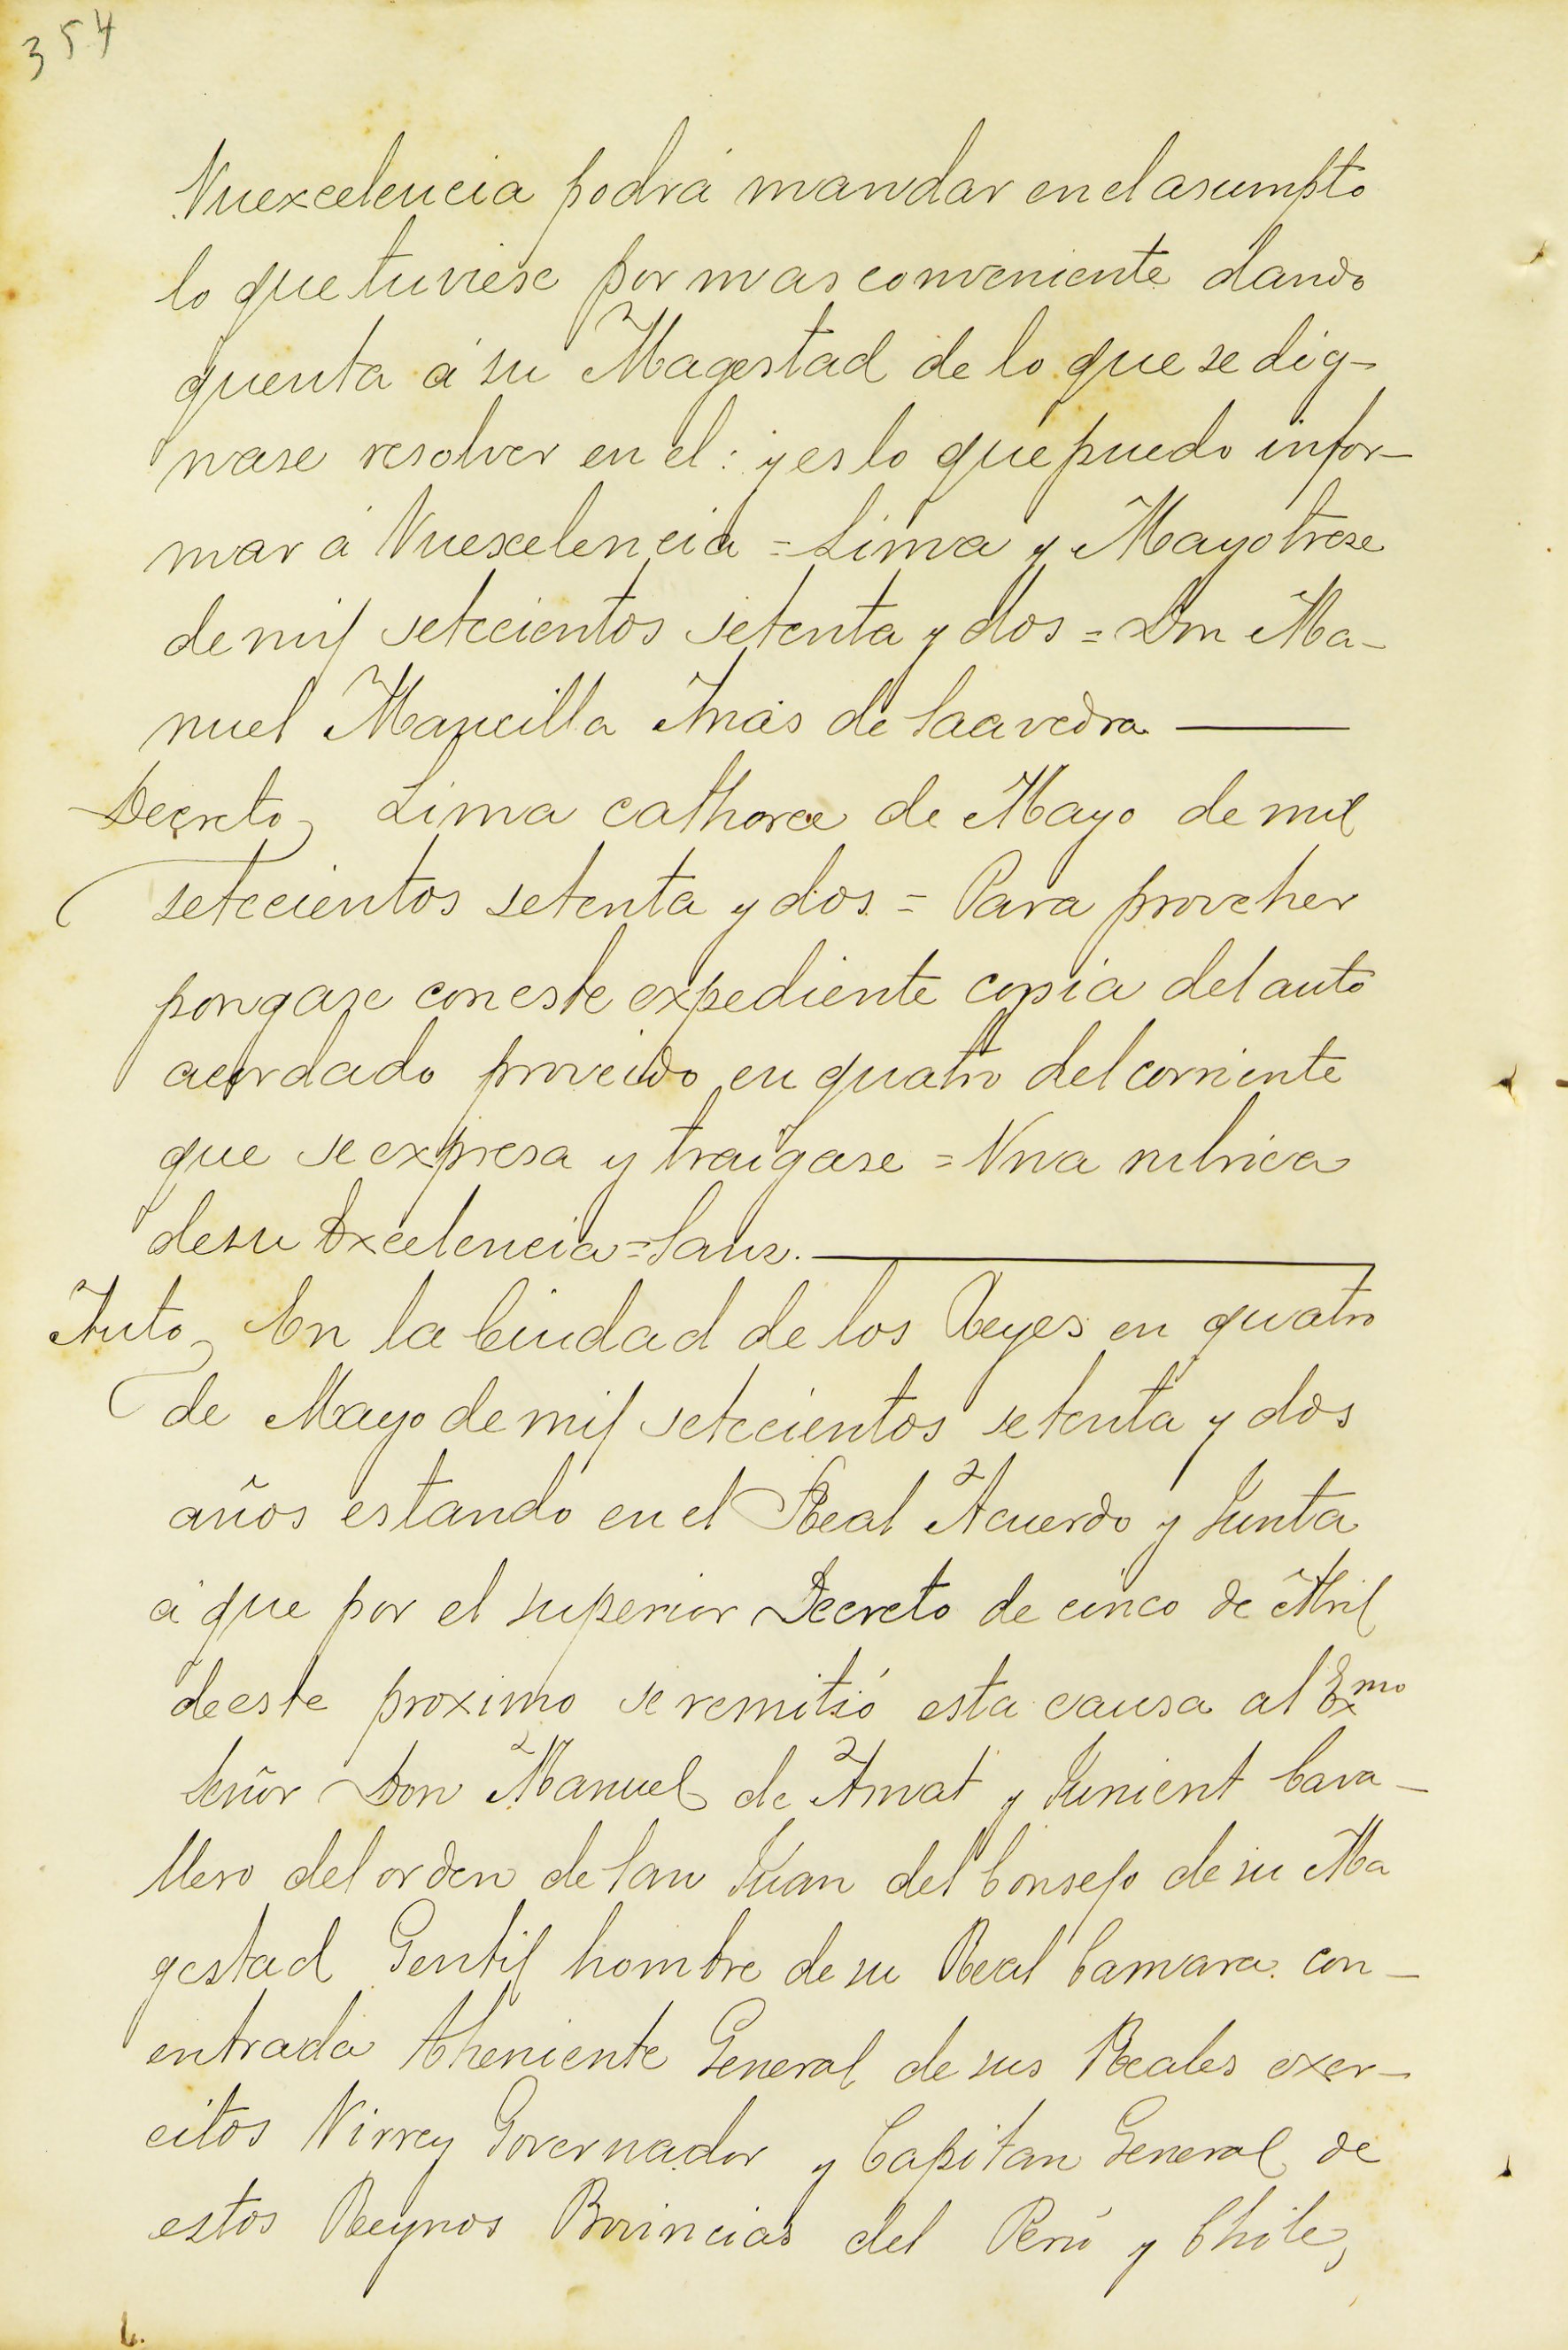 354
Vuexcelencia podrá mandar en el asumpto
lo que tuviese por mas conveniente dando
quenta á su Magestad de lo que se dig-
nase resolver en el: y es lo que puedo infor-
mar á Vuexcelencia = Lima y Mayo trese
de mil setecientos setenta y dos = Don Ma-
nuel Mancilla Arias de Saavedra
Decreto Lima cathorce de Mayo de mil
setecientos setenta y dos = Para proveher
pongase con este expediente copia del auto
acordado proveido en quatro del corriente
que se expresa y traigase = Una rubrica
de su Excelencia = Sanz.
Auto En la Ciudad de los Reyes en quatro
de Mayo de mil setecientos setenta y dos
años estando en el Real Acuerdo y Junta
á que por el superior Decreto de cinco de Abril
de este proximo se remitió esta causa al Exmo
Señor Don Manuel de Amat y Junient Cava-
llero del orden de San Juan del Consejo de su Ma
gestad Gentil hombre de su Real Camara con-
entrada theniente General de sus Reales exer-
citos Virrey Governador y Capitan General de
estos Reynos Provincias del Perú y Chile,